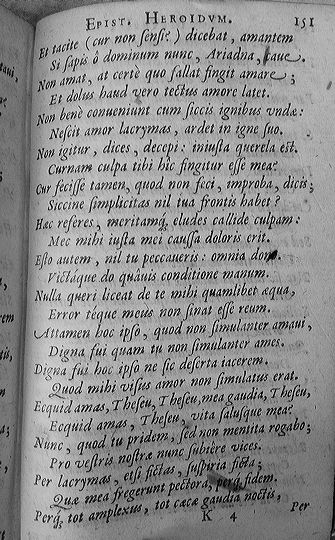 EPIST. HEROIDVM. 151
Et tacite (cur non sensi?) dicebat, amantem
Si sapis ô dominum nunc, Ariadna, caue.
Non amat, at certè quo fallat fingit amare;
Et dolus haud vero tectus amore latet.
Non benè conueniunt cum siccis ignibus vndæ:
Nescit amor lacrymas, ardet in igne suo.
Non igitur, dices, decepi: iniusta querela est.
Curnam culpa tibi hîc fingitur esse mea?
Cur fecisse tamen, quod non feci, improba, dicis;
Siccine simplicitas nil tua frontis habet?
Hæc referes, meritamq́; eludes callide culpam:
Nec mihi iusta mei caussa doloris erit.
Esto autem, nil tu peccaueris: omnia dona.
Victáque do quâuis conditione manum.
Nulla queri liceat de te mihi quamlibet æqua,
Error téque meus non sinat esse reum.
Attamen hoc ipso, quod non simulanter amaui,
Digna fui quam tu non simulanter ames.
Digna fui hoc ipso ne sic deserta iacerem.
Quod mihi visus amor non simulatus erat.
Ecquid amas, Theseu, Theseu, mea gaudia, Theseu,
Ecquid amas, Theseu, vita salusque mea?
Nunc, quod tu pridem, sed non mentita rogabo;
Pro vestris nostræ nunc subiêre vices.
Per lacrymas, etsi fictas, suspiria ficta;
Quæ mea fregerunt pectora, perq́; fidem.
Perq́; tot amplexus, tot cæca gaudia noctis,
K 4 Per